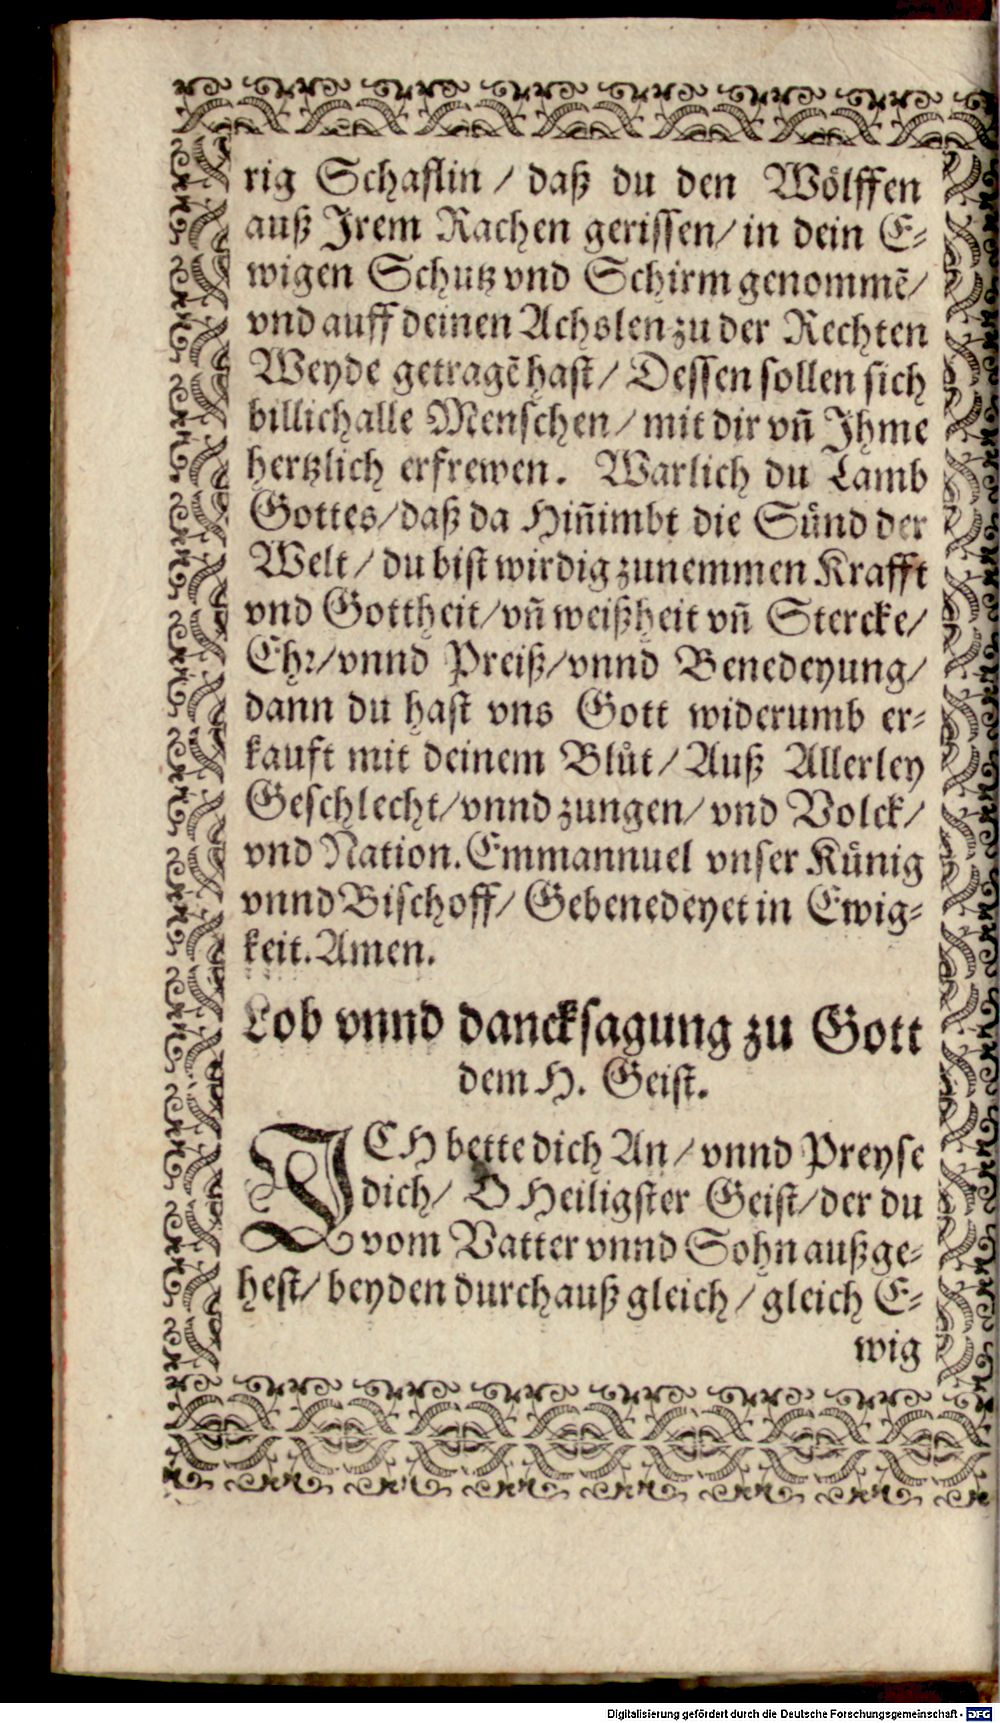 rig Schaflin / daß du den Wölffen
auß Jrem Rachen gerissen/ in dein E-
wigen Schutz vnd Schirm genommẽ/
vnd auff deinen Achslen zu der Rechten
Weyde getragẽ hast/ Dessen sollen sich
billich alle Menschen/ mit dir vñ Jhme
hertzlich erfrewen. Warlich du Lamb
Gottes/daß da Hiñimbt die Sünd der
Welt/ du bist wirdig zunemmen Krafft
vnd Gottheit/vñ weißheit vñ Stercke/
Ehr/vnnd Preiß/vnnd Benedeyung/
dann du hast vns Gott widerumb er-
kauft mit deinem Blůt/ Auß Allerley
Geschlecht/vnnd zungen/ vnd Volck/
vnd Nation. Emmannuel vnser Künig
vnnd Bischoff/ Gebenedeyet in Ewig-
keit. Amen.
Lob vnnd dancksagung zu Gott
dem H. Geist.
JCH bette dich An/ vnnd Preyse
dich/ O Heiligster Geist/der du
vom Vatter vnnd Sohn außge-
hest/ beyden durchauß gleich/ gleich E-
wig
Digitalisierung gefördert durch die Deutsche Forschungsgemeinschaft - DFG